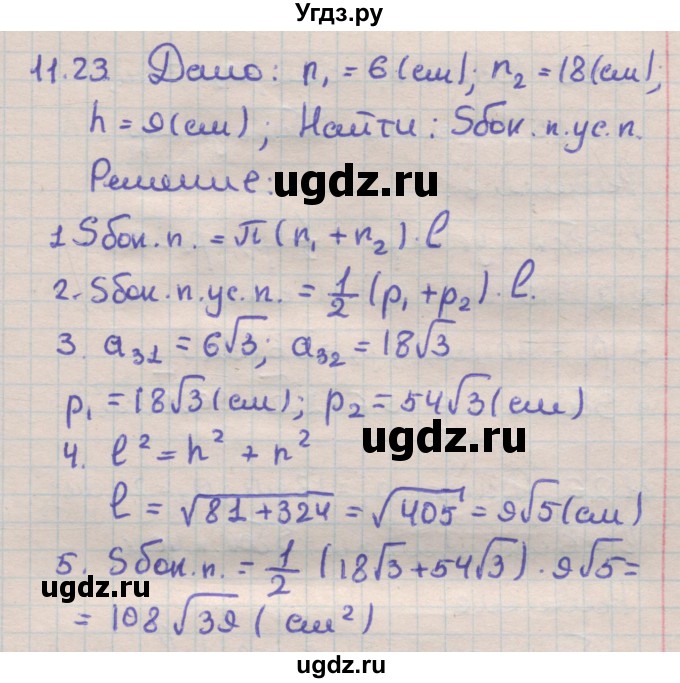 Угдз.ру
11.23 Дано: r₁ = 6 (см); r₂ = 18 (см);
h = 9 (см); Найти: Sбок.п.ус.п.
Решение:
ugdz.ru
1. Sбок.п. = π(r₁ + r₂)·l
2. Sбок.п.ус.п. = 1/2 (p₁ + p₂)·l.
3. a₃₁ = 6√3; a₃₂ = 18√3
p₁ = 18√3 (см); p₂ = 54√3 (см)
ugdz.ru
4. l² = h² + r²
l = √81+324 = √405 = 9√5 (см)
5. Sбок.п. = 1/2 (18√3 + 54√3)·9√5 =
ugdz.ru
= 108√39 (см²)
ugdz.ru